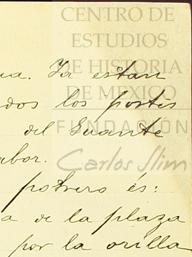 CENTRO DE
ESTUDIOS
DE HISTORIA
DE MEXICO
FUNDACIÓN
Carlos Slim
Ya estan
dos los
del
potrero és:
a de la plaza
por la orilla